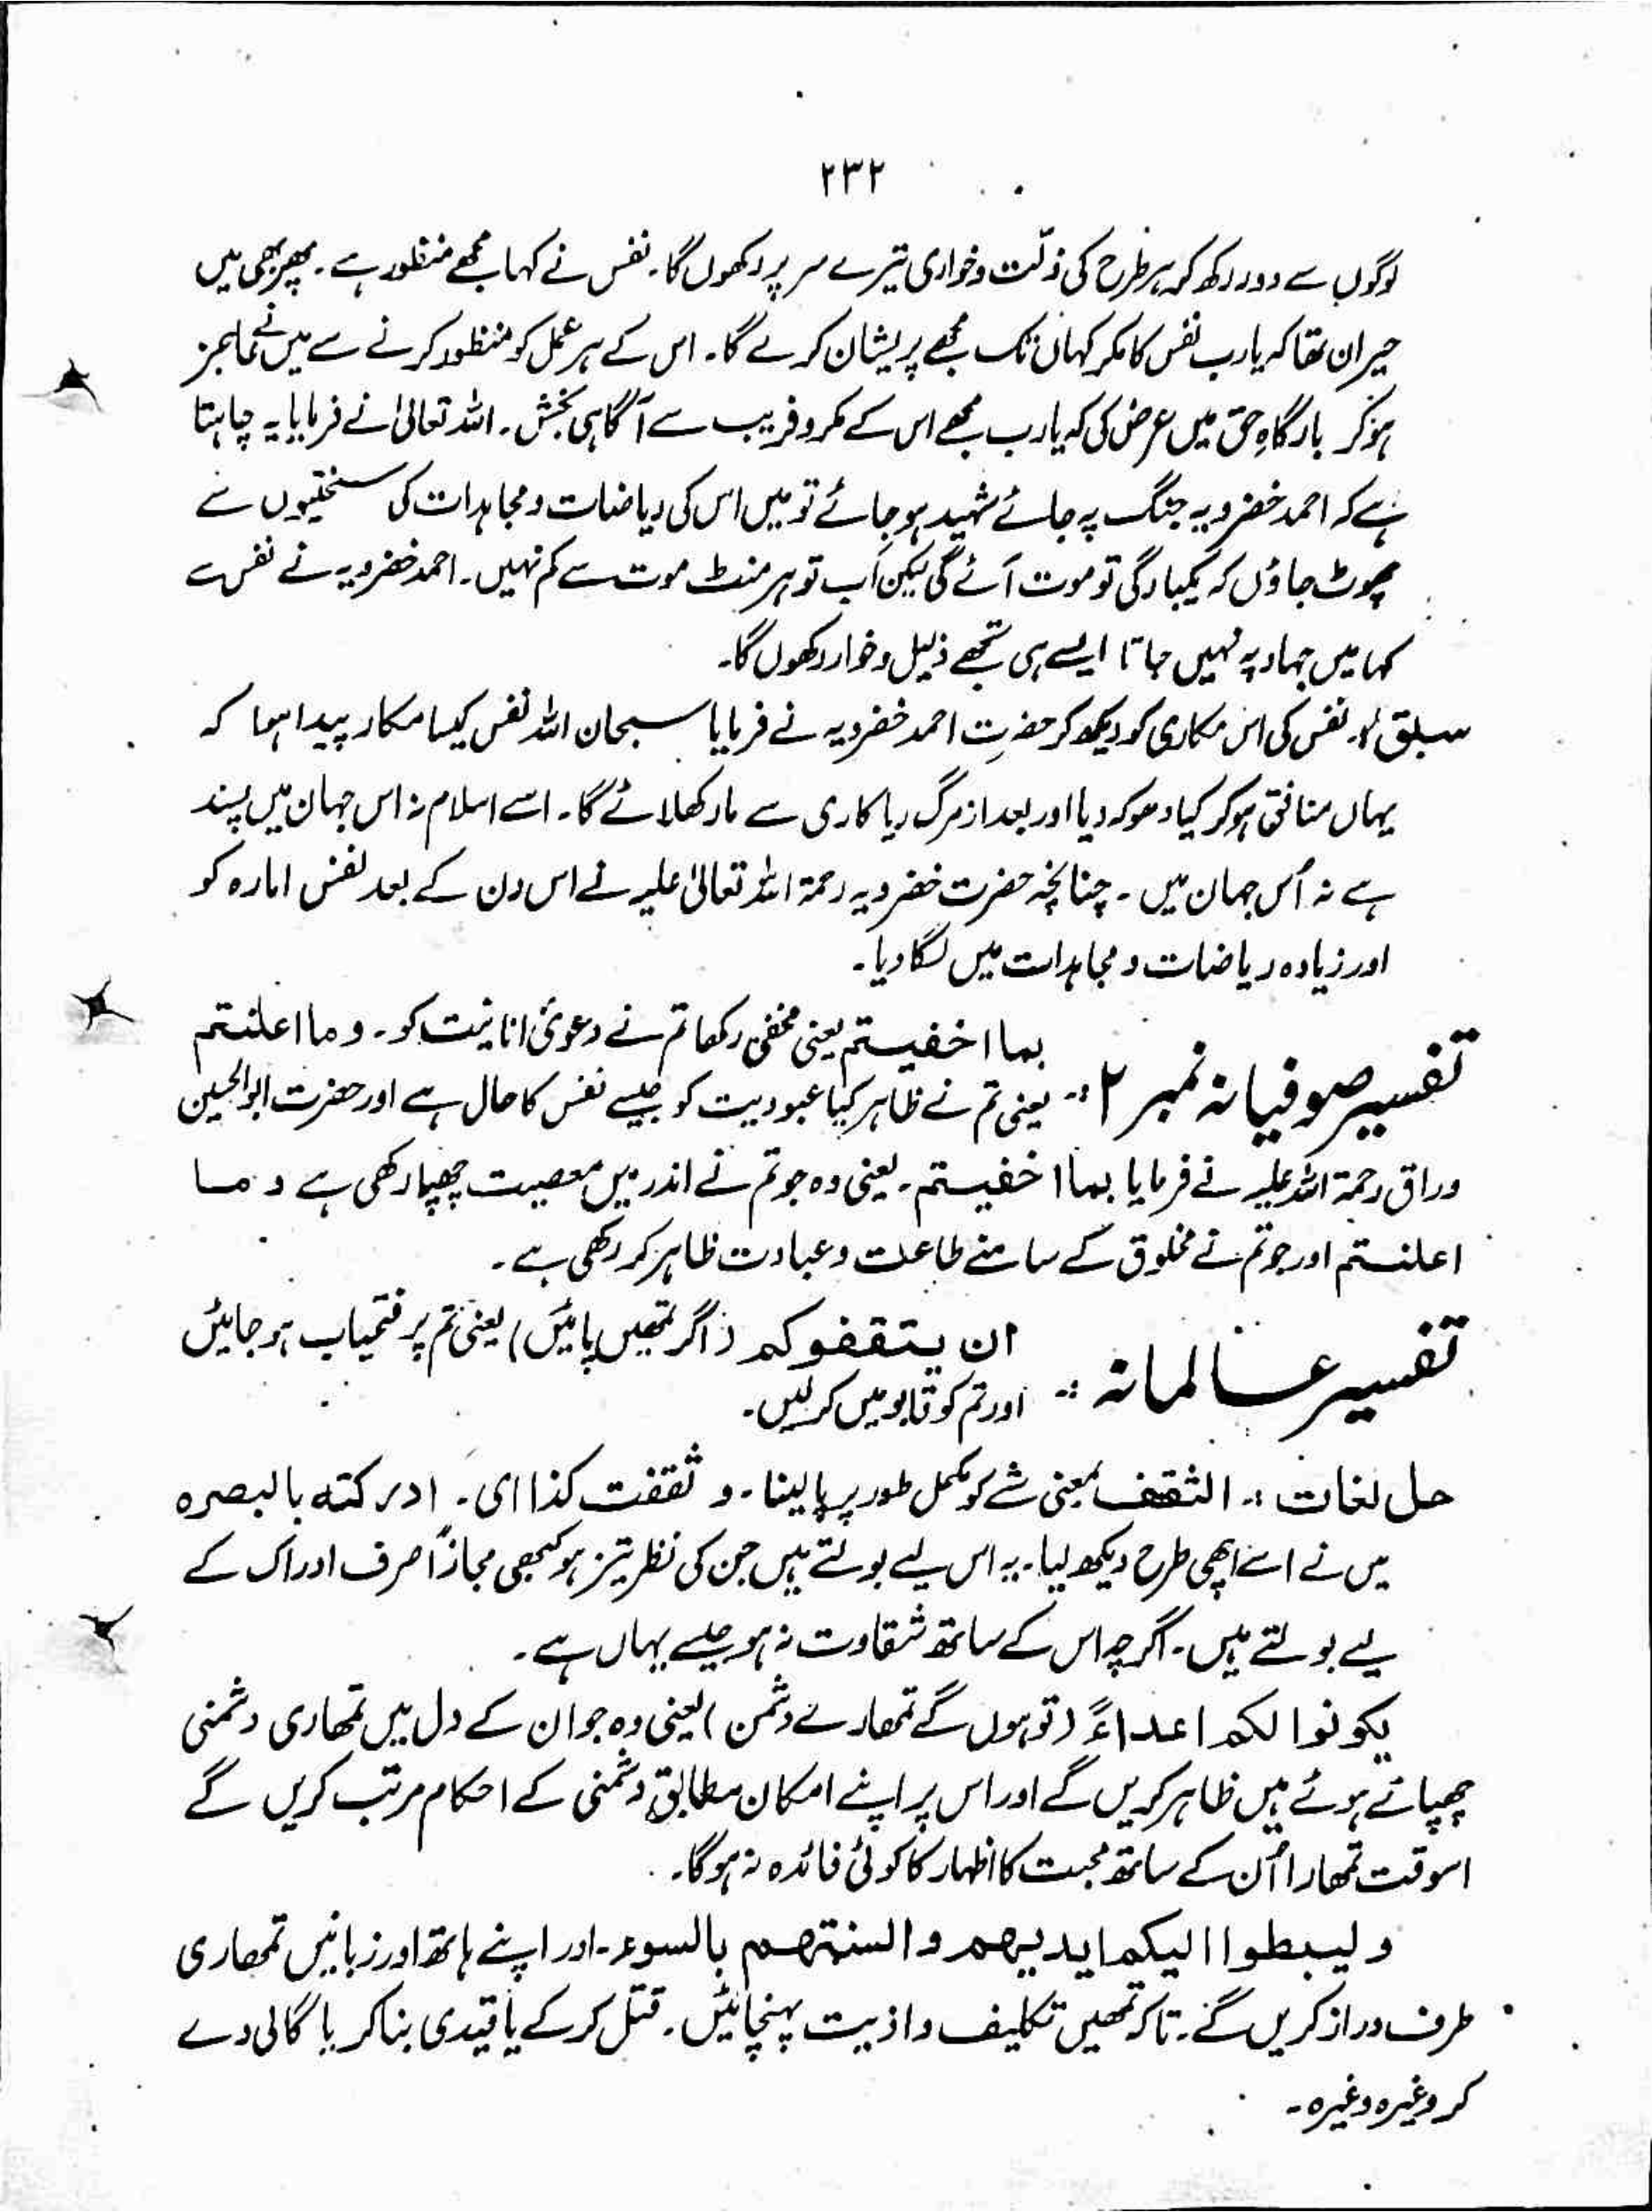 ۲۳۲
لوگوں سے دور رکھ کر ہر طرح کی ذلّت و خواری تیرے سر پر رکھوں گا۔ نفس نے کہا مجھے منظور ہے۔ پھر بھی میں
حیران تھا کہ یا رب نفس کا مکر کہاں تک مجھے پریشان کرے گا۔ اس کے ہر عمل کو منظور کرنے سے میں نے عاجز
ہو کر بارگاہِ حق میں عرض کی کہ یا رب مجھے اس کے مکر و فریب سے آگاہی بخش۔ اللہ تعالیٰ نے فرمایا یہ چاہتا
ہے کہ احمد خضرویہ جنگ پہ جائے شہید ہو جائے تو میں اس کی ریاضات و مجاہدات کی سختیوں سے
چھوٹ جاؤں کہ یکبارگی تو موت آئے گی لیکن اَب تو ہر منٹ موت سے کم نہیں۔ احمد خضرویہ نے نفس سے
کہا میں جہاد پہ نہیں جاتا ایسے ہی تجھے ذلیل و خوار رکھوں گا۔
سبق: نفس کی اس مکاری کو دیکھ کر حضرتِ احمد خضرویہ نے فرمایا سبحان اللہ نفس کیسا مکار پیدا ہوا کہ
یہاں منافق ہو کر کیا دھوکہ دیا اور بعد از مرگ ریا کاری سے مار کھلائے گا۔ اسے اسلام نہ اس جہان میں پسند
ہے نہ اُس جہان میں۔ چنانچہ حضرت خضرویہ رحمۃ اللہ تعالیٰ علیہ نے اس دن کے بعد نفس امارہ کو
اور زیادہ ریاضات و مجاہدات میں لگا دیا۔
تفسیر صوفیانہ نمبر ۲ :- بما اخفیتم یعنی مخفی رکھا تم نے دعویٰ انانیت کو۔ وما اعلنتم
یعنی تم نے ظاہر کیا عبودیت کو جیسے نفس کا حال ہے اور حضرت ابوالحسین
وراق رحمۃ اللہ علیہ نے فرمایا بما اخفیتم۔ یعنی وہ جو تم نے اندر میں معصیت چھپا رکھی ہے وما
اعلنتم اور جو تم نے مخلوق کے سامنے طاعت و عبادت ظاہر کر رکھی ہے۔
تفسیر عالمانہ :- ان یثقفوکم (اگر تمھیں پائیں) یعنی تم پر فتحیاب ہو جائیں
اور تم کو قابو میں کر لیں۔
حل لغات :- الثقف بمعنی شے کو مکمل طور پر پا لینا۔ و ثقفت کذا ای۔ ادرکتہ بالبصرہ
میں نے اسے اچھی طرح دیکھ لیا۔ یہ اس لیے بولتے ہیں جن کی نظر تیز ہو کبھی مجازاً صرف ادراک کے
لیے بولتے ہیں۔ اگرچہ اس کے ساتھ ثقاوت نہ ہو جیسے یہاں ہے۔
یکونوا لکم اعداءً (تو ہوں گے تمھارے دشمن) یعنی وہ جو ان کے دل میں تمھاری دشمنی
چھپائے ہوئے ہیں ظاہر کریں گے اور اس پر اپنے امکان مطابق دشمنی کے احکام مرتب کریں گے
اسوقت تمھارا اُن کے ساتھ محبت کا اظہار کا کوئی فائدہ نہ ہوگا۔
و لیبطوا الیکم ایدیہم و السنتہم بالسوء۔ اور اپنے ہاتھ اور زبانیں تمھاری
طرف دراز کریں گے۔ تاکہ تمھیں تکلیف و اذیت پہنچائیں۔ قتل کر کے یا قیدی بنا کر یا گالی دے
کر وغیرہ وغیرہ۔